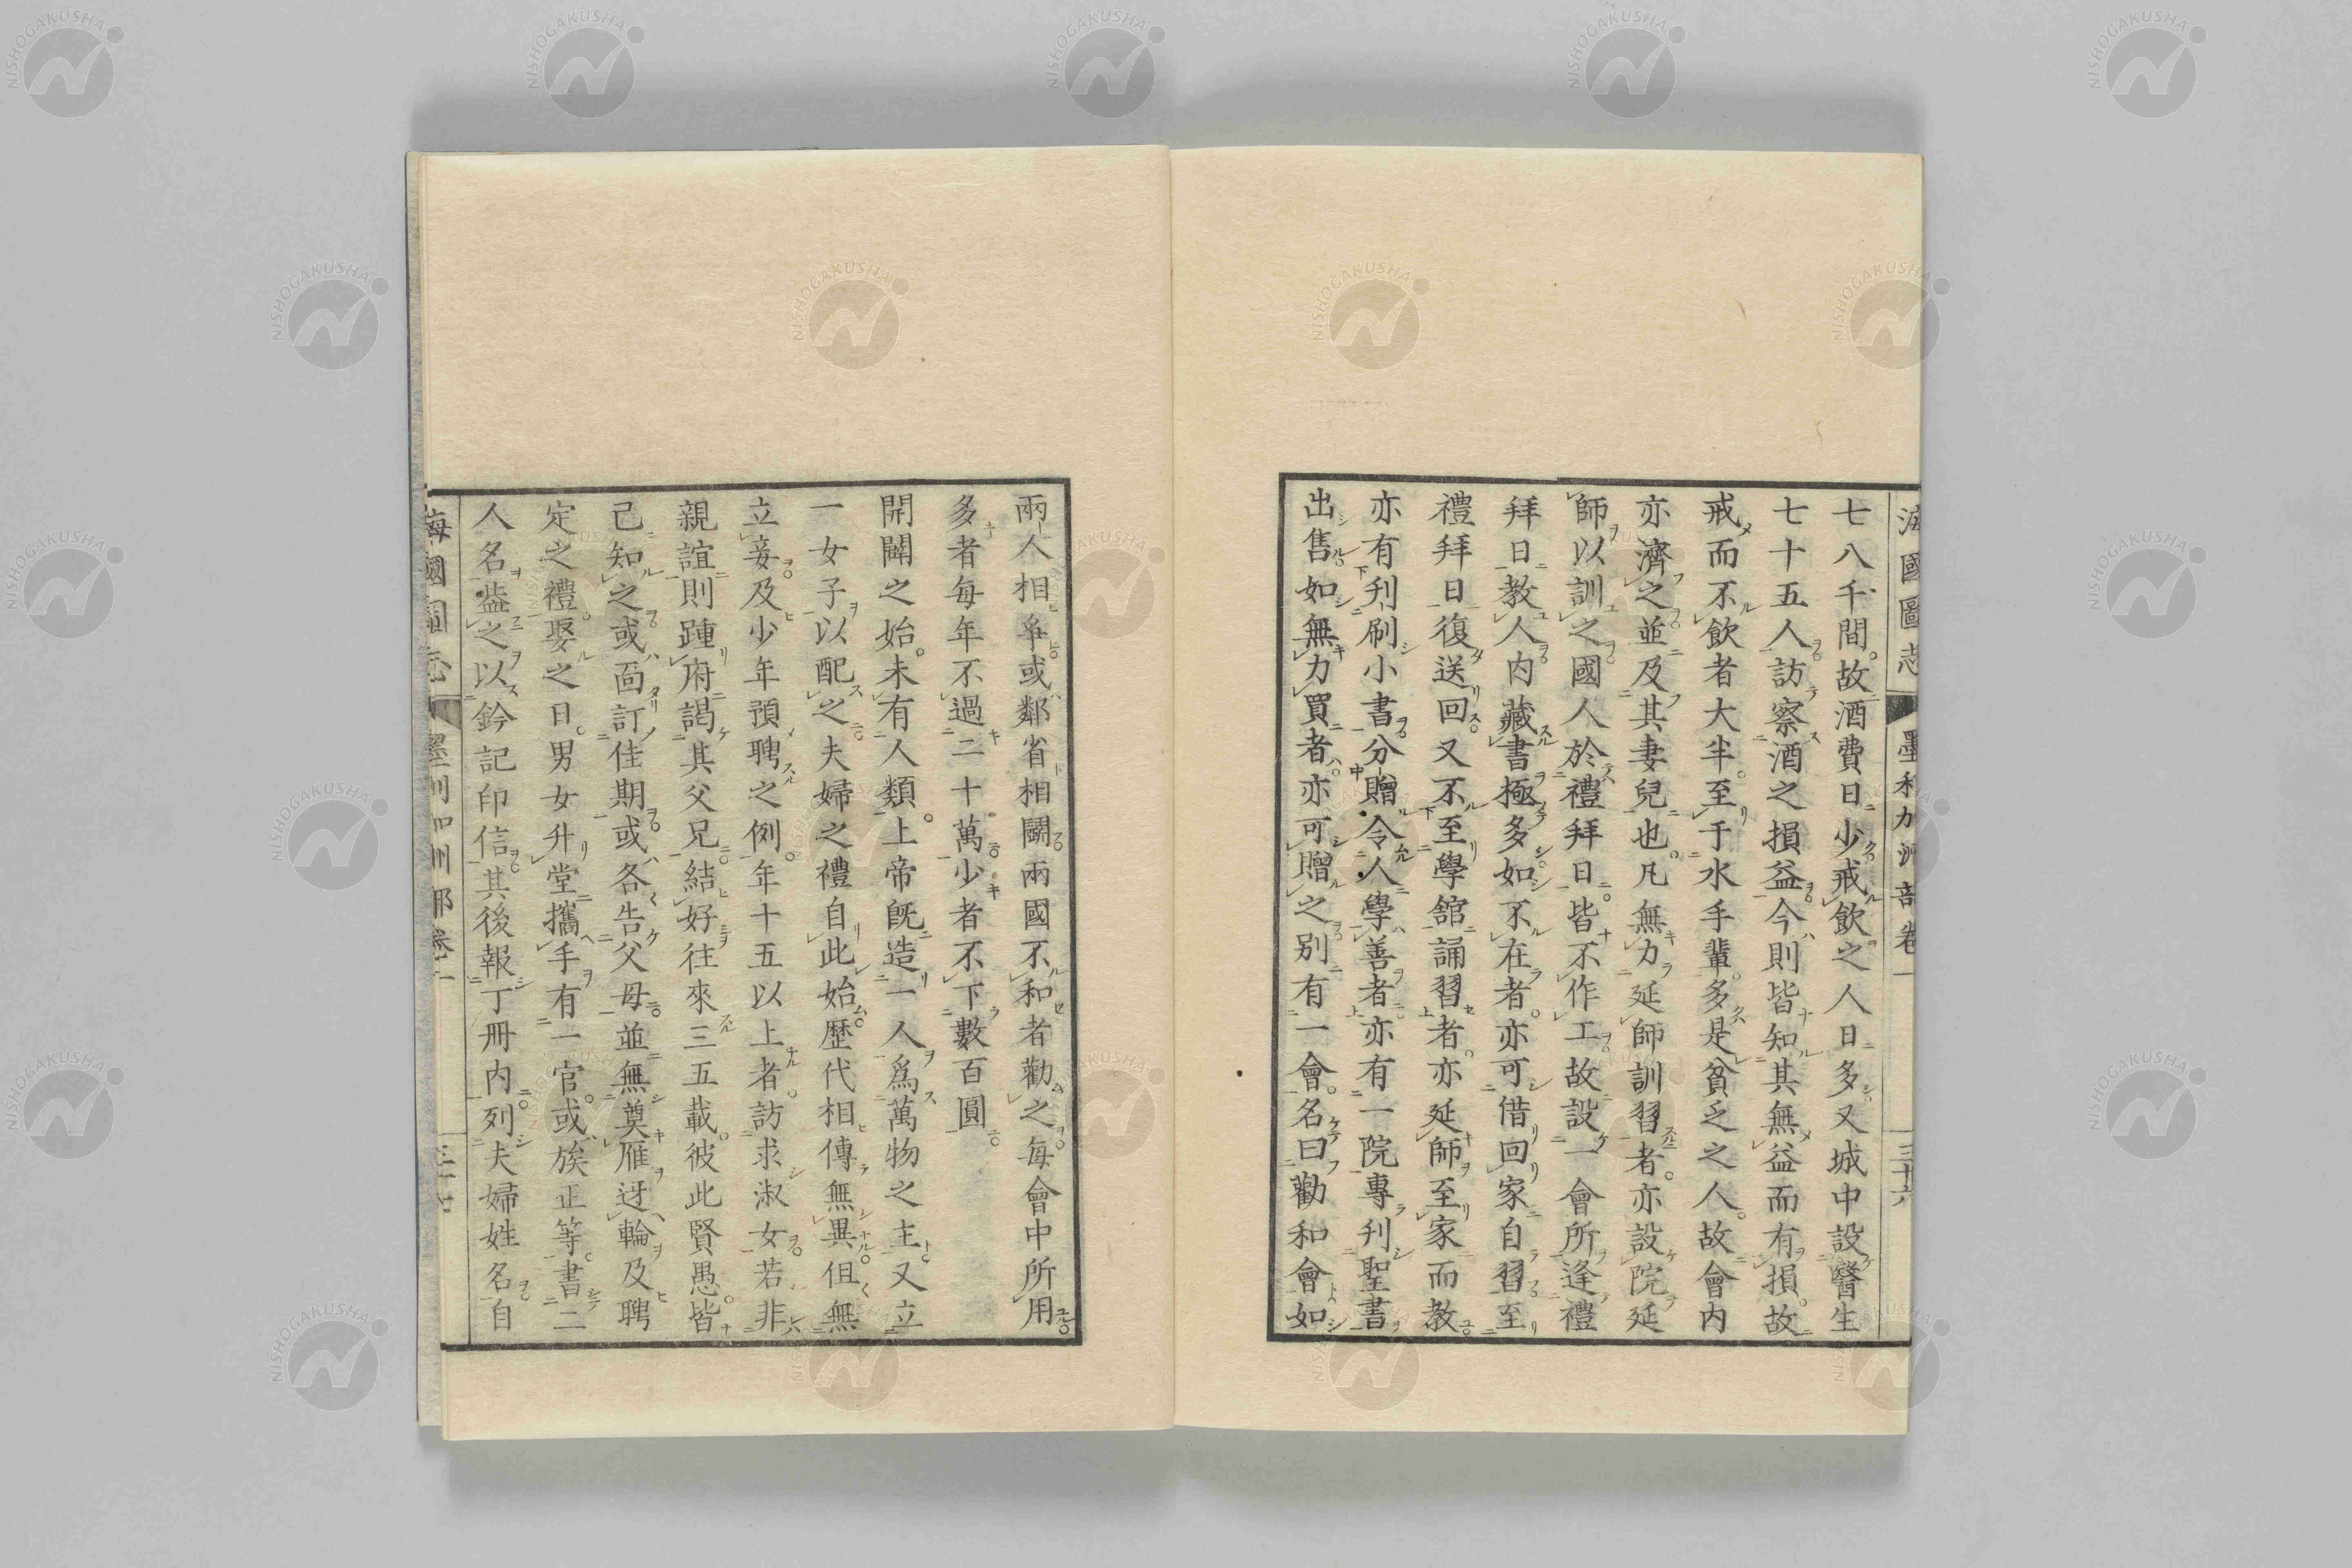 海國圖志 墨利加洲部卷一 三十六
七八千間故酒費日少戒飲之人日多又城中設醫生
七十五人訪察酒之損益今則皆知其無益而有損故
戒而不飲者大半至于水手輩多是貧乏之人故會内
亦濟之並及其妻兒也凡無力延師訓習者亦設院延
師以訓之國人於禮拜日皆不作工故設一會所逢禮
拜日教人内藏書極多如不在者亦可借回家自習至
禮拜日復送回又不至學舘誦習者亦延師至家而教
亦有刋刷小書分贈令人學善者亦有一院專刋聖書
出售如無力買者亦可贈之别有一會名曰勸和會如
兩人相爭或鄰省相鬭兩國不和者勸之每會中所用
多者每年不過二十萬少者不下數百圓
開闢之始未有人類上帝旣造一人爲萬物之主又立
一女子以配之夫婦之禮自此始歷代相傳無異但無
立妾及少年預聘之例年十五以上者訪求淑女若非
親誼則踵府謁其父兄結好往來三五載彼此賢愚皆
己知之或面訂佳期或各告父母並無奠雁迓輪及聘
定之禮娶之日男女升堂攜手有一官或族正等書二
人名盐之以鈐記印信其後報丁册内列夫婦姓名自
海國圖志 墨利加洲部卷一